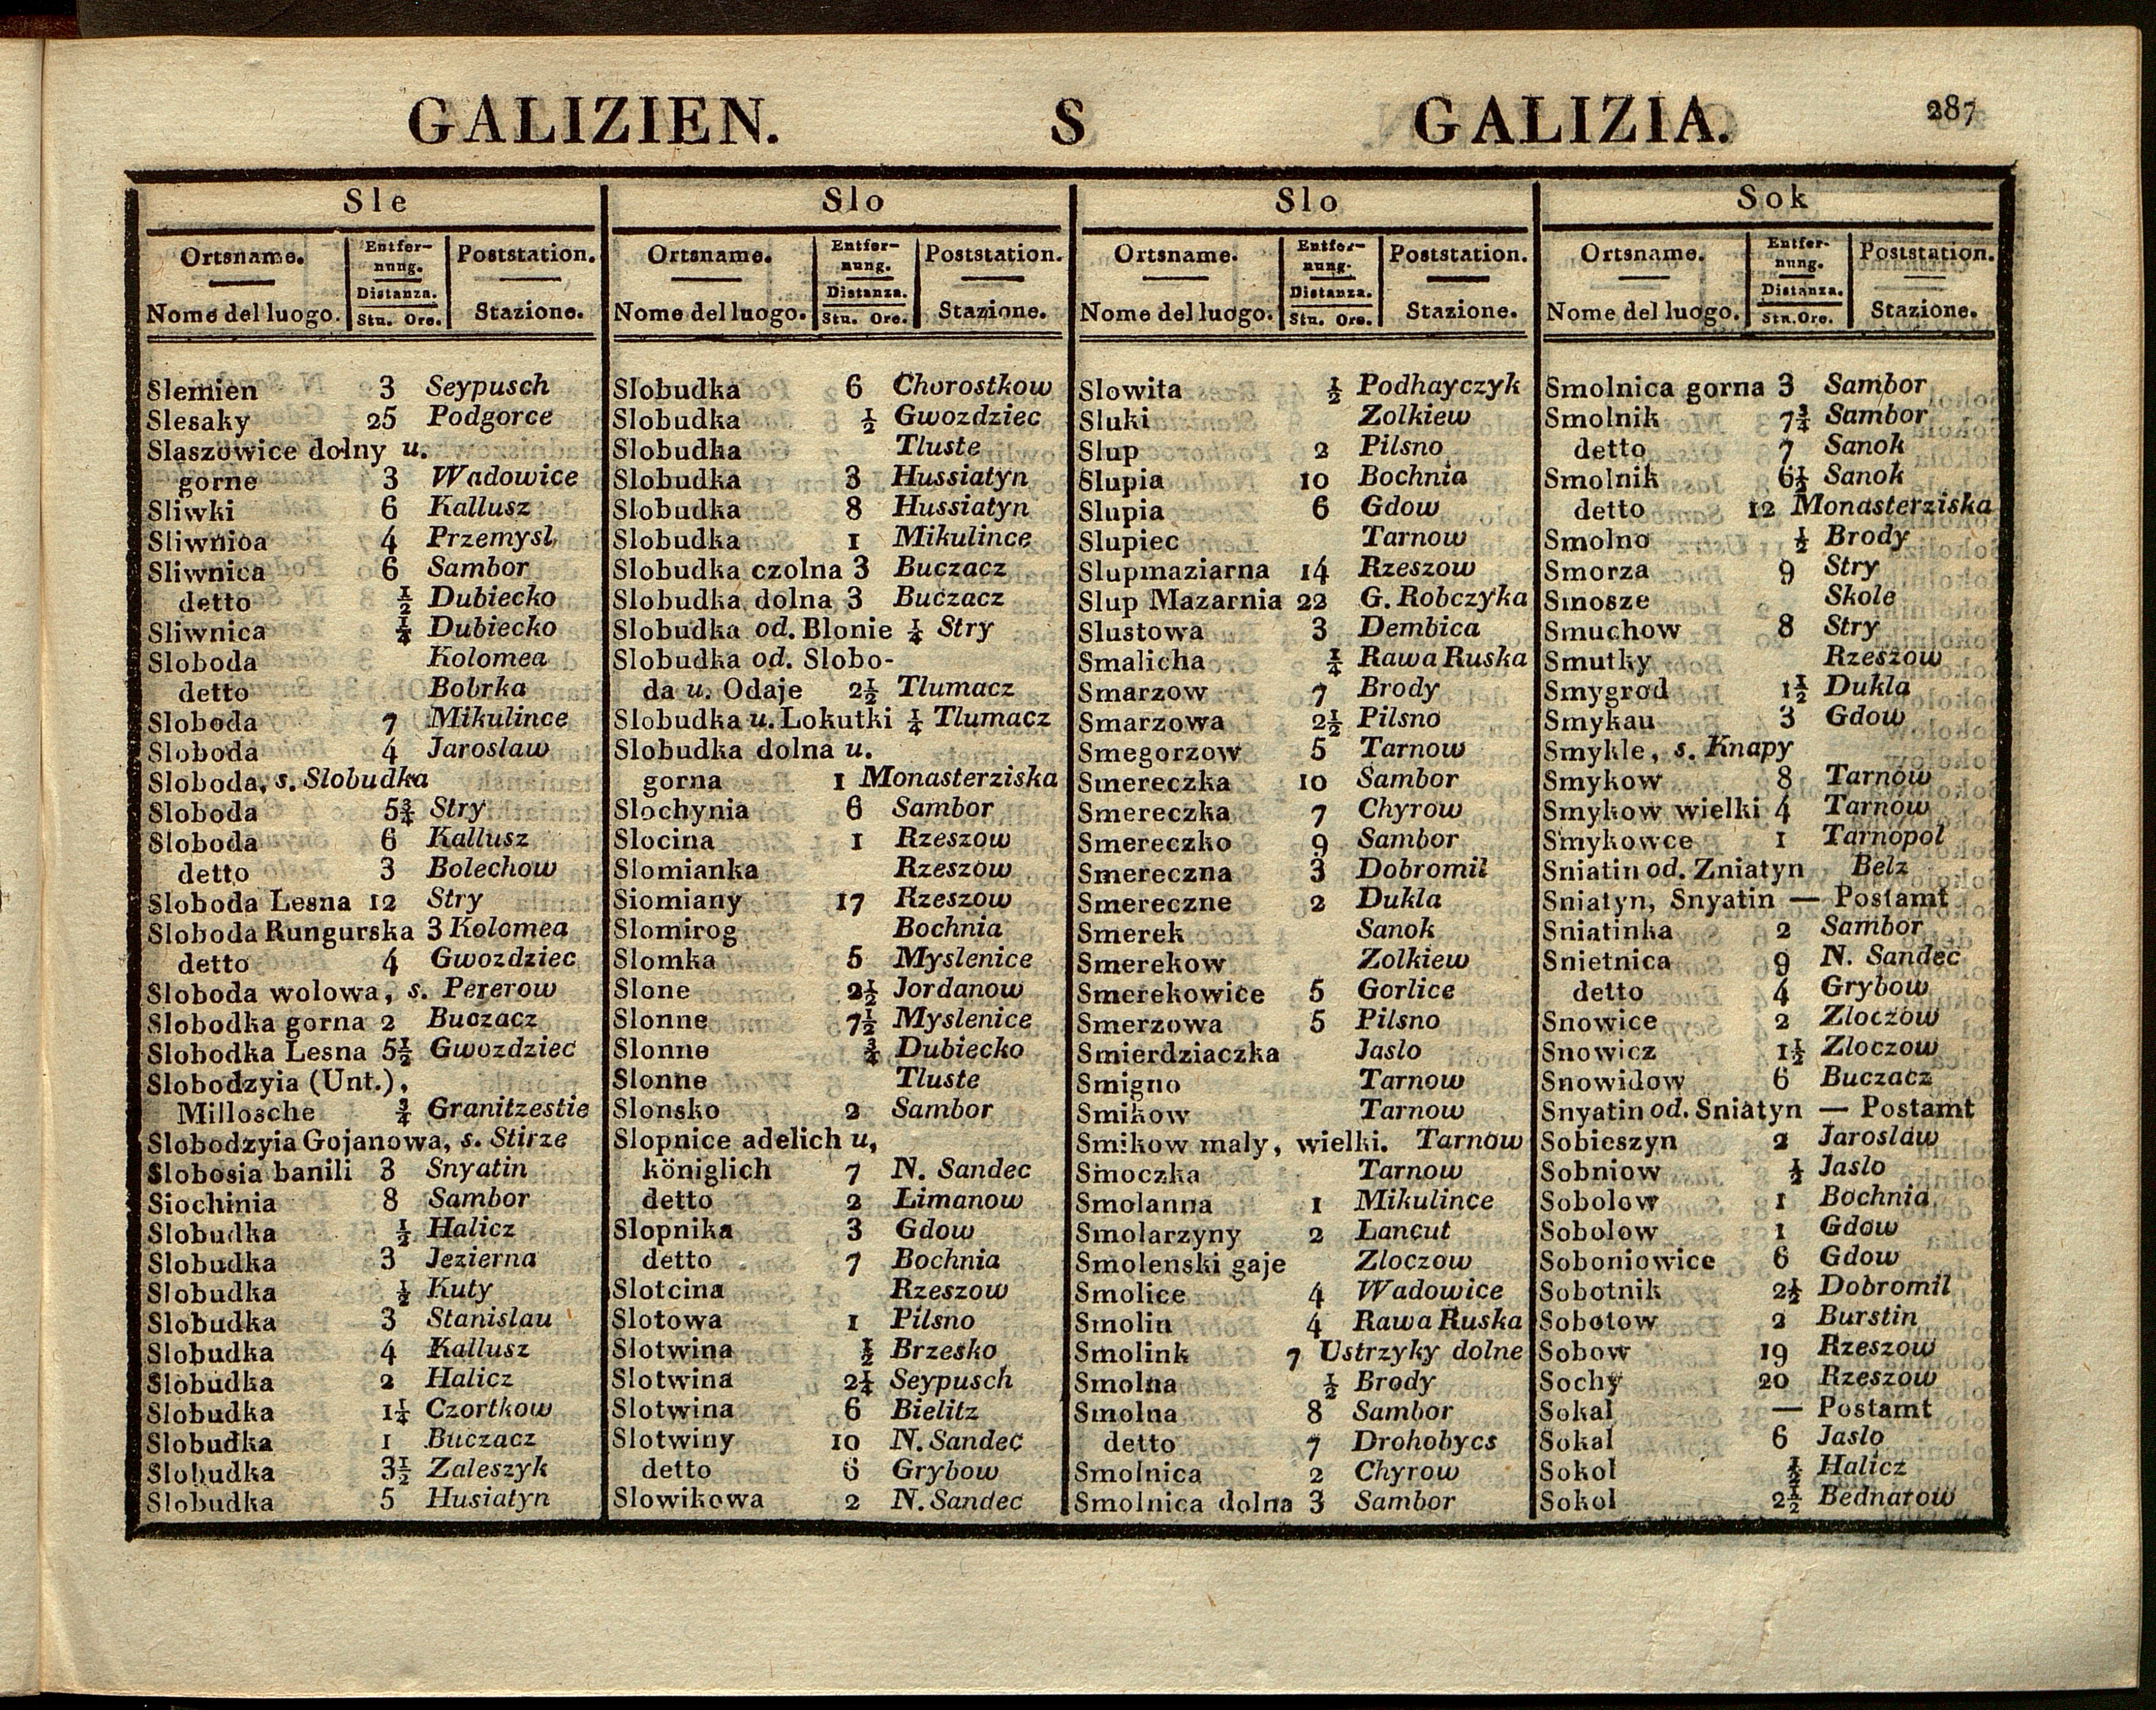 GALIZIEN. S GALIZIA. 287
Sle
Ortsname. Entfer- Poststation.
nung.
Distanza.
Nome del luogo. Stu. Ore. Stazione.
Slemien 3 Seypusch
Slesaky 25 Podgorce
Slaszowice dolny u.
gorne 3 Wadowice
Sliwki 6 Kallusz
Sliwnica 4 Przemysl
Sliwnica 6 Sambor
detto ½ Dubiecko
Sliwnica ¼ Dubiecko
Sloboda Kolomea
detto Bobrka
Sloboda 7 Mikulince
Sloboda 4 Jaroslaw
Sloboda, s. Slobudka
Sloboda 5¾ Stry
Sloboda 6 Kallusz
detto 3 Bolechow
Sloboda Lesna 12 Stry
Sloboda Rungurska 3 Kolomea
detto 4 Gwozdziec
Sloboda wolowa, s. Pererow
Slobodka gorna 2 Buczacz
Slobodka Lesna 5½ Gwozdziec
Slobodzyia (Unt.),
Millosche ¾ Granitzestie
Slobodzyia Gojanowa, s. Stirze
Slobosia banili 3 Snyatin
Siochinia 8 Sambor
Slobudka ½ Halicz
Slobudka 3 Jezierna
Slobudka ½ Kuty
Slobudka 3 Stanislau
Slobudka 4 Kallusz
Slobudka 2 Halicz
Slobudka 1¼ Czortkow
Slobudka 1 Buczacz
Slobudka 3½ Zaleszyk
Slobudka 5 Husiatyn
Slo
Ortsname. Entfer- Poststation.
nung.
Distanza.
Nome del luogo. Stu. Ore. Stazione.
Slobudka 6 Chorostkow
Slobudka ½ Gwozdziec
Slobudka Tluste
Slobudka 3 Hussiatyn
Slobudka 8 Hussiatyn
Slobudka 1 Mikulince
Slobudka czolna 3 Buczacz
Slobudka dolna 3 Buczacz
Slobudka od. Blonie ¼ Stry
Slobudka od. Slobo-
da u. Odaje 2½ Tlumacz
Slobudka u. Lokutki ¼ Tlumacz
Slobudka dolna u.
gorna 1 Monasterziska
Slochynia 6 Sambor
Slocina 1 Rzeszow
Slomianka Rzeszow
Siomiany 17 Rzeszow
Slomirog Bochnia
Slomka 5 Myslenice
Slone 2½ Jordanow
Slonne 7½ Myslenice
Slonne ¾ Dubiecko
Slonne Tluste
Slonsko 2 Sambor
Slopnice adelich u,
königlich 7 N. Sandec
detto 2 Limanow
Slopnika 3 Gdow
detto 7 Bochnia
Slotcina Rzeszow
Slotowa 1 Pilsno
Slotwina ½ Brzesko
Slotwina 2¼ Seypusch
Slotwina 6 Bielitz
Slotwiny 10 N. Sandec
detto 6 Grybow
Slowikowa 2 N. Sandec
Slo
Ortsname. Entfer- Poststation.
nung.
Distanza.
Nome del luogo. Stu. Ore. Stazione.
Slowita ½ Podhayczyk
Sluki Zolkiew
Slup 2 Pilsno
Slupia 10 Bochnia
Slupia 6 Gdow
Slupiec Tarnow
Slupmaziarna 14 Rzeszow
Slup Mazarnia 22 G. Robczyka
Slustowa 3 Dembica
Smalicha ¼ Rawa Ruska
Smarzow 7 Brody
Smarzowa 2½ Pilsno
Smegorzow 5 Tarnow
Smereczka 10 Sambor
Smereczka 7 Chyrow
Smereczko 9 Sambor
Smereczna 3 Dobromil
Smereczne 2 Dukla
Smerek Sanok
Smerekow Zolkiew
Smerekowice 5 Gorlice
Smerzowa 5 Pilsno
Smierdziaczka Jaslo
Smigno Tarnow
Smikow Tarnow
Smikow maly, wielki. Tarnow
Smoczka Tarnow
Smolanna 1 Mikulince
Smolarzyny 2 Lancut
Smolenski gaje Zloczow
Smolice 4 Wadowice
Smolin 4 Rawa Ruska
Smolink 7 Ustrzyky dolne
Smolna ½ Brody
Smolna 8 Sambor
detto 7 Drohobycs
Smolnica 2 Chyrow
Smolnica dolna 3 Sambor
Sok
Ortsname. Entfer- Poststation.
nung.
Distanza.
Nome del luogo. Stn. Ore. Stazione.
Smolnica gorna 3 Sambor
Smolnik 7¾ Sambor
detto 7 Sanok
Smolnik 6½ Sanok
detto 12 Monasterziska
Smolno ½ Brody
Smorza 9 Stry
Smosze Skole
Smuchow 8 Stry
Smutky Rzeszow
Smygrod 1½ Dukla
Smykau 3 Gdow
Smykle, s. Knapy
Smykow 8 Tarnow
Smykow wielki 4 Tarnow
Smykowce 1 Tarnopol
Sniatin od. Zniatyn Belz
Sniatyn, Snyatin — Postamt
Sniatinka 2 Sambor
Snietnica 9 N. Sandec
detto 4 Grybow
Snowice 2 Zloczow
Snowicz 1½ Zloczow
Snowidow 6 Buczacz
Snyatin od. Sniatyn — Postamt
Sobieszyn 2 Jaroslaw
Sobniow ½ Jaslo
Sobolow 1 Bochnia
Sobolow 1 Gdow
Soboniowice 6 Gdow
Sobotnik 2½ Dobromil
Sobotow 2 Burstin
Sobow 19 Rzeszow
Sochy 20 Rzeszow
Sokal — Postamt
Sokal 6 Jaslo
Sokol ½ Halicz
Sokol 2½ Bednarow